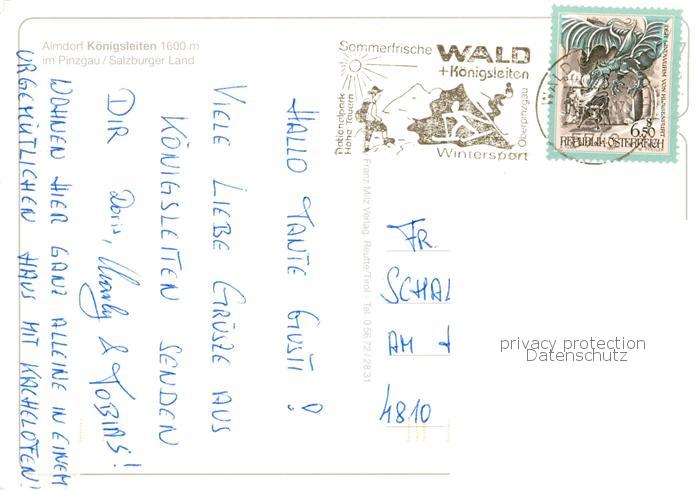 Almdorf Königsleiten 1600 m
im Pinzgau / Salzburger Land
Sommerfrische WALD
+Königsleiten
Nationalpark
Hohe Tauern
Oberpinzgau
Wintersport
WALD
DER LINDWURM VON KLAGENFURT
S 6.50
REPUBLIK ÖSTERREICH
HALLO TANTE GUSTI!
VIELE LIEBE GRÜSZE AUS
KÖNIGSLEITEN SENDEN
DIR Doris, & TOBIAS!
WOHNEN HIER GANZ ALLEINE IN EINEM
URGEMÜTLICHEN HAUS MIT KACHELOFEN!
Franz Milz Verlag Reutte/Tirol - Tel. 0 56 72 / 28 31
FR.
SCHAL
AM
4810
privacy protection
Datenschutz